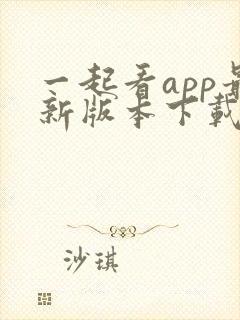 一起看app最
新版本下载
沙琪